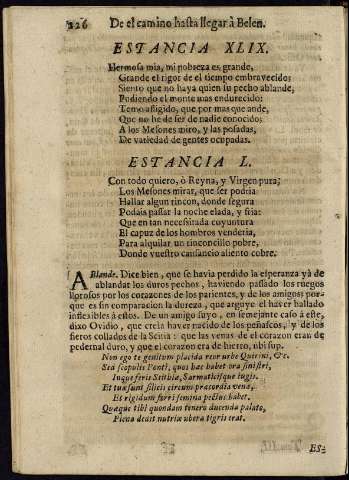 226 De el camino hasta llegar à Belen.
ESTANCIA XLIX.
Hermosa mia, mi pobreza es grande,
Grande el rigor de el tiempo embravecido;
Siento que no haya quien su pecho ablande,
Pudiendo el monte mas endurecido:
Temo afligido, que por mas que ande,
Que no he de ser de nadie conocido;
A los Mesones miro, y las posadas,
De variedad de gentes ocupadas.
ESTANCIA L.
Con todo quiero, ò Reyna, y Virgen pura;
Los Mesones mirar, que ser podria
Hallar algun rincon, donde segura
Podais passar la noche elada, y fria:
Que en tan necessitada coyuntura
El capuz de los hombros venderia,
Para alquilar un rinconcillo pobre,
Donde vuestro cansancio aliento cobre.
ABlande. Dice bien, que se havia perdido la esperanza yà de
ablandar los duros pechos, haviendo passado los ruegos
llorosos por los corazones de los parientes, y de los amigos; por-
que es sin comparacion la dureza, que arguye el haver hallado
inflexibles à estos. De un amigo suyo, en semejante caso à este,
dixo Ovidio, que creìa haver nacido de los peñascos, y de los
fieros collados de la Scitia: que las venas de el corazon eran de
pedernal duro, y que el corazon era de hierro, ubi sup.
Non ego te genitum placida reor urbe Quirini, &c.
Sed scopulis Ponti, quos hæc habet ora sinistri,
Inque feris Scithiæ, Sarmaticisque iugis.
Et tua sunt silicis circum præcordia venæ,
Et rigidum ferri semina pectus habet.
Quæque tibi quondam tenero ducenda palato,
Plena dedit nutrix ubera tigris erat.
ES-